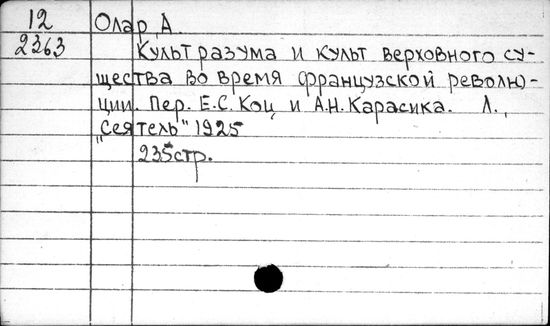 12 Олар, А.
2363 Культ разума и культ верховного су-
щества во время французской револю-
ции. Пер. Е.С. Коц и А.Н. Карасика. Л.,
"Сеятель" 1925
235стр.